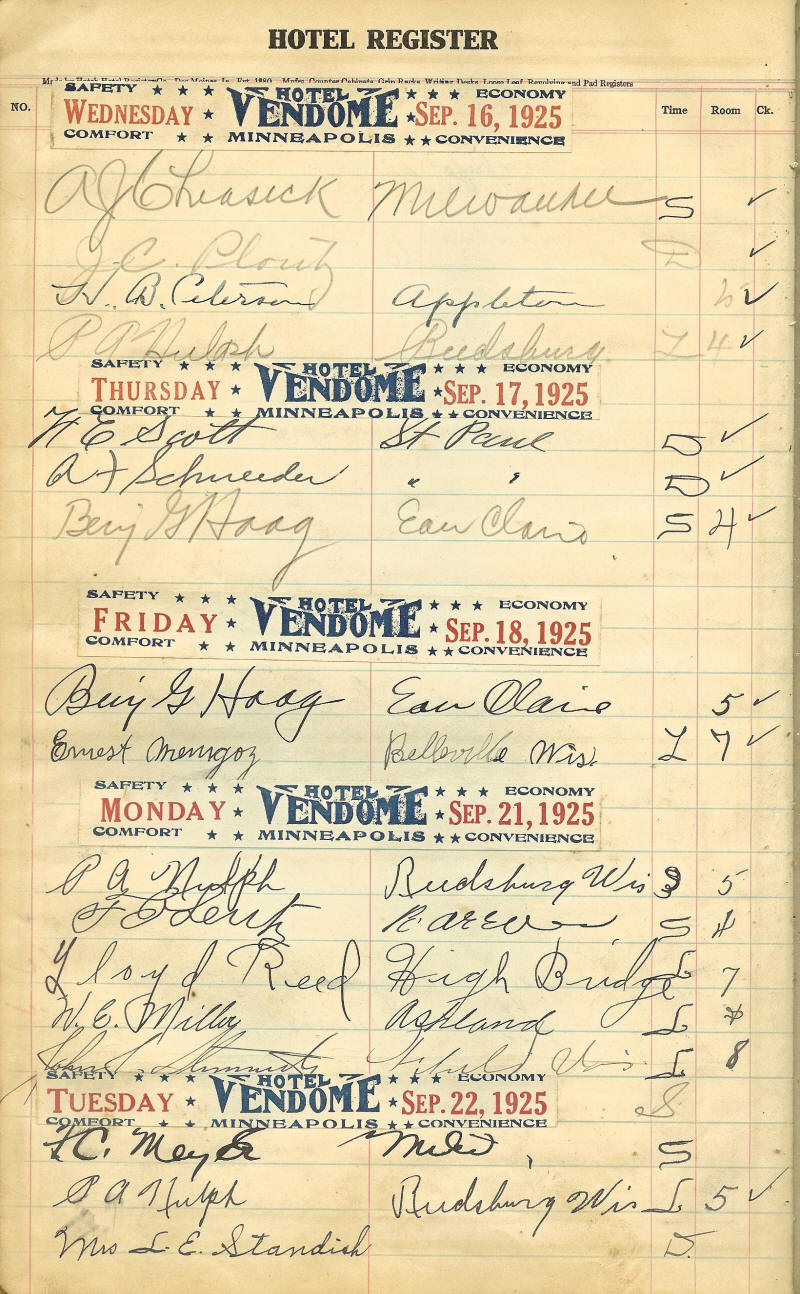 HOTEL REGISTER
Made by Hotch Hotel Register Co., Des Moines, Ia. Est. 1880. Mnfrs. Counter Cabinets, Grip Racks, Writing Desks, Loose Leaf, Revolving and Pad Registers
NO. Time Room Ck.
SAFETY ★ ★ ★ HOTEL ★ ★ ★ ECONOMY
WEDNESDAY ★ VENDOME ★ SEP. 16, 1925
COMFORT ★ ★ MINNEAPOLIS ★ ★ CONVENIENCE
A J Milwaukee S ✓
J. C. D ✓
H. B. Peterson Appleton ✓
P A Nulph Reedsburg L 4 ✓
SAFETY ★ ★ ★ HOTEL ★ ★ ★ ECONOMY
THURSDAY ★ VENDOME ★ SEP. 17, 1925
COMFORT ★ ★ MINNEAPOLIS ★ ★ CONVENIENCE
W E Scott St Paul D ✓
A F Schneeder " " D ✓
Benj G Haag Eau Claire S 4 ✓
SAFETY ★ ★ ★ HOTEL ★ ★ ★ ECONOMY
FRIDAY ★ VENDOME ★ SEP. 18, 1925
COMFORT ★ ★ MINNEAPOLIS ★ ★ CONVENIENCE
Benj G Haag Eau Claire 5 ✓
Ernest Memgoz Belleville Wis. L 7 ✓
SAFETY ★ ★ ★ HOTEL ★ ★ ★ ECONOMY
MONDAY ★ VENDOME ★ SEP. 21, 1925
COMFORT ★ ★ MINNEAPOLIS ★ ★ CONVENIENCE
P A Nulph Reedsburg Wis 5
S 4
Lloyd Reed High Bridge L 7
W. E. Miller Ashland L
Wis. L 8
SAFETY ★ ★ ★ HOTEL ★ ★ ★ ECONOMY
TUESDAY ★ VENDOME ★ SEP. 22, 1925 S
COMFORT ★ ★ MINNEAPOLIS ★ ★ CONVENIENCE
C. Meyer Milw S
P A Nulph Reedsburg Wis L 5 ✓
Mrs L. E. Standish D.